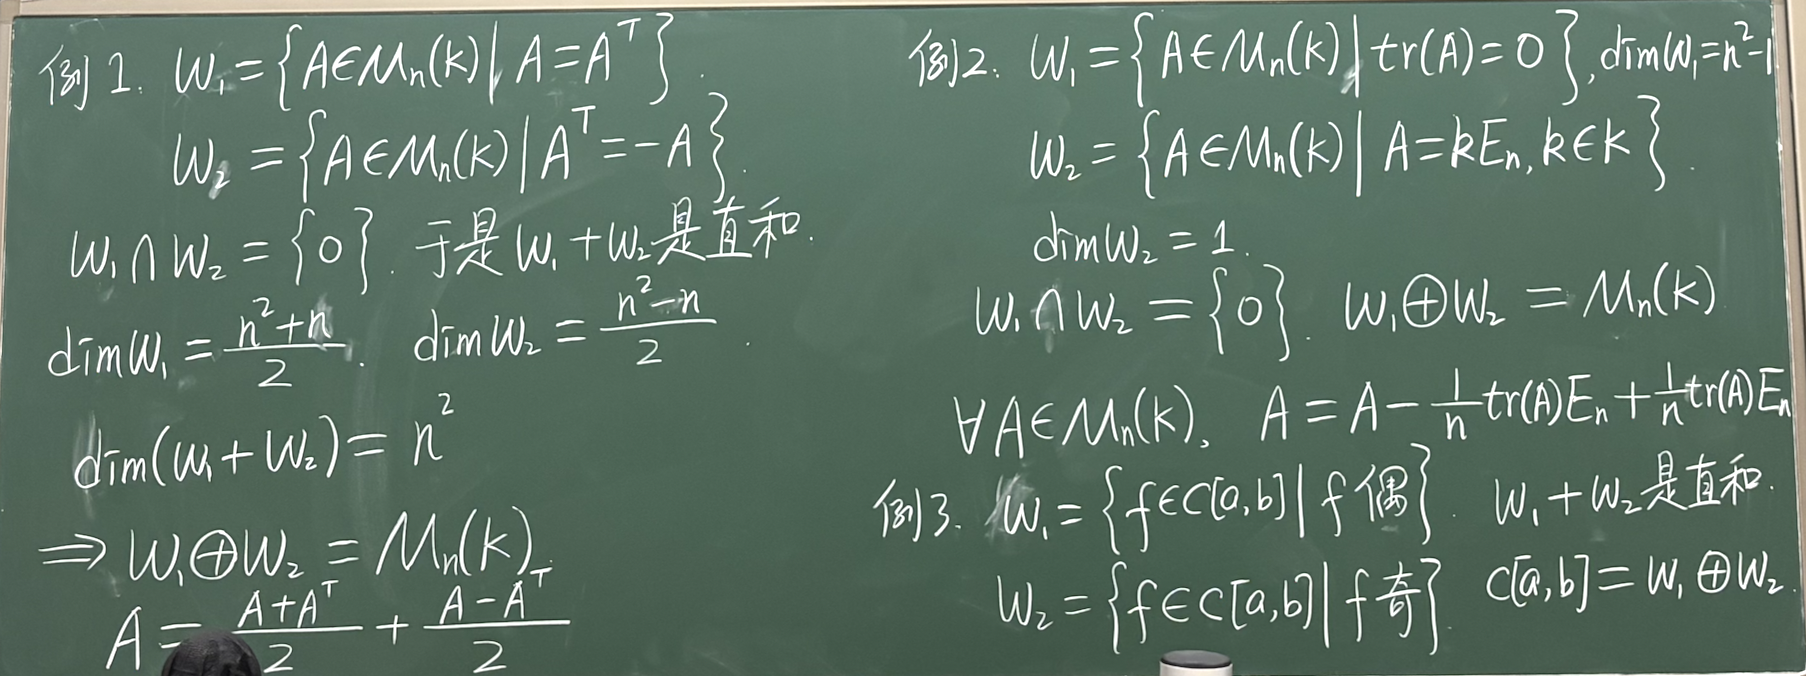 例1. W₁={A∈Mₙ(K)|A=Aᵀ}.
W₂={A∈Mₙ(K)|Aᵀ=-A}.
W₁∩W₂={0}. 于是W₁+W₂是直和.
dimW₁=(n²+n)/2. dimW₂=(n²-n)/2.
dim(W₁+W₂)=n²
⇒W₁⊕W₂=Mₙ(K).
A=(A+Aᵀ)/2+(A-Aᵀ)/2
例2. W₁={A∈Mₙ(K)|tr(A)=0}, dimW₁=n²-1
W₂={A∈Mₙ(K)|A=kEₙ, k∈K}.
dimW₂=1.
W₁∩W₂={0}. W₁⊕W₂=Mₙ(K)
∀A∈Mₙ(K), A=A-1/n tr(A)Eₙ+1/n tr(A)Eₙ
例3. W₁={f∈C[a,b]|f偶}. W₁+W₂是直和.
W₂={f∈C[a,b]|f奇} C[a,b]=W₁⊕W₂.